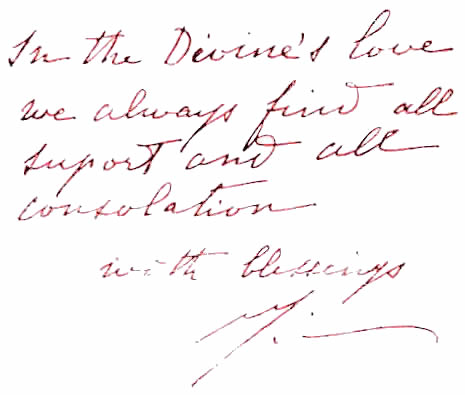 In the Divine's love
we always find all
suport and all
consolation
with blessings